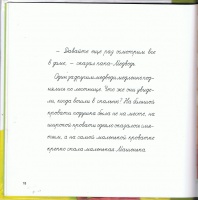 — Давайте ещё раз осмотрим все
в доме, — сказал папа-Медведь.
Один за другим медведи медленно под-
нялись по лестнице. Что же они увиде-
ли, когда вошли в спальню? На большой
кровати подушка была не на месте, на
широкой кровати одеяло оказалось смя-
тым, а на самой маленькой кроватке
крепко спала маленькая Машенька.